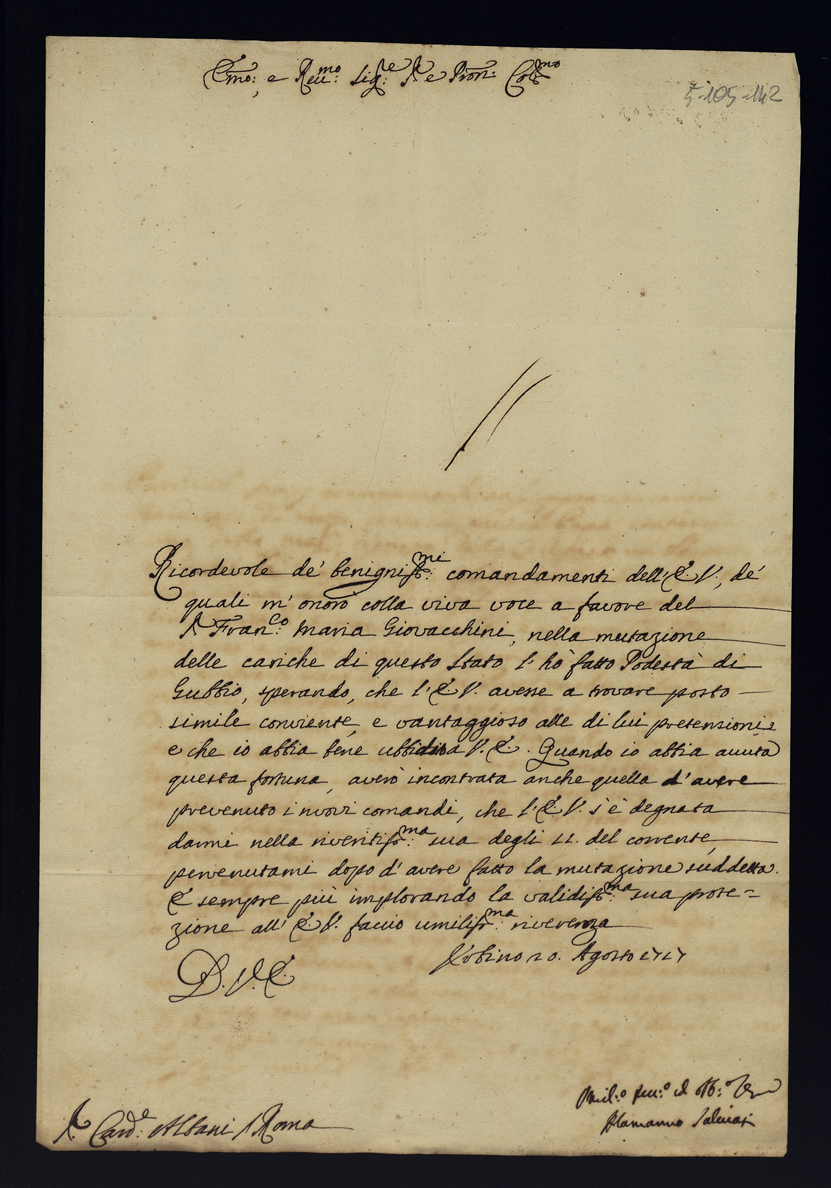 Em̃o: e Reu:mo Sig:re Sr e Pron: Col:mo
5-105-142
Ricordevole de' benigniss:mi comandamenti dell'E. V., de'
quali m'onorò colla viva voce a favore del
Sr Fran:co Maria Giovacchini, nella mutazione
delle cariche di questo Stato l'hò fatto Podestà di
Gubbio, sperando, che l'E. V. avesse a trovare posto
simile conviente, e vantaggioso alle di lui pretensioni,
e che io abbia bene ubbidito a V. E. Quando io abbia auuta
questa fortuna, averò incontrata anche quella d'avere
prevenuto i nuovi comandi, che l'E. V. s'è degnata
darmi nella riveritiss:ma sua degli 11. del corrente,
pervenutami dopo d'avere fatto la mutazione suddetta.
E sempre più implorando la validiss:ma sua prote=
zione all'E. V. faccio umiliss:ma riverenza
Vrbino 20. Agosto 1717
D. V. E.
Sr Card:le Albani Roma
Alamanno Salviati